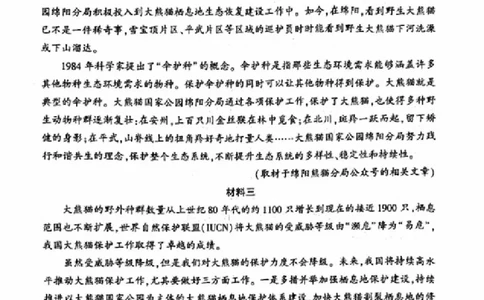 园绵阳分局积极投入到大熊猫栖息地生态恢复建设工作中。如今,在绵阳,看到野生大熊猫
已不是一件稀奇事,雪宝顶片区、平武片区等区域的巡护员时时能看到野生大熊猫下河洗澡
或下山溜达。
1984年科学家提出了“伞护种”的概念。伞护种是指那些生态环境需求能够涵盖许多
其他物种生态环境需求的物种。保护伞护种的同时可以让其他物种得到保护。大熊猫就是
典型的伞护种。大熊猫国家公园绵阳分局通过各项保护工作,保护了大熊猫,也使得多种野
生动物种群逐渐复壮:在安州,上百只川金丝猴在林中觅食;在北川,斑羚一跃而起,留下矫
健的身影;在平武,山脊线上的扭角羚好奇地打量人类……大熊猫国家公园绵阳分局努力践
行和谐共生的理念,保护整个生态系统,不断提升生态系统的多样性、稳定性和持续性。
(取材于绵阳熊猫分局公众号的相关文章)
材料三
大熊猫的野外种群数量从上世纪80年代的约1100只增长到现在的接近1900只,栖息
范围也不断扩展,世界自然保护联盟(IUCN)将大熊猫的受威胁等级由“濒危”降为“易危”,
我国大熊猫保护工作取得了卓越的成绩。
虽然受威胁等级降级,但是我们对大熊猫的保护力度不会降级。未来,我国将持续高水
平推动大熊猫保护工作,尤其要做好三方面工作。一是多措并举加强栖息地保护建设,持续
推进以大熊猫国家公园为主体的大熊猫栖息地保护体系建设,加快大熊猫割裂栖息地的